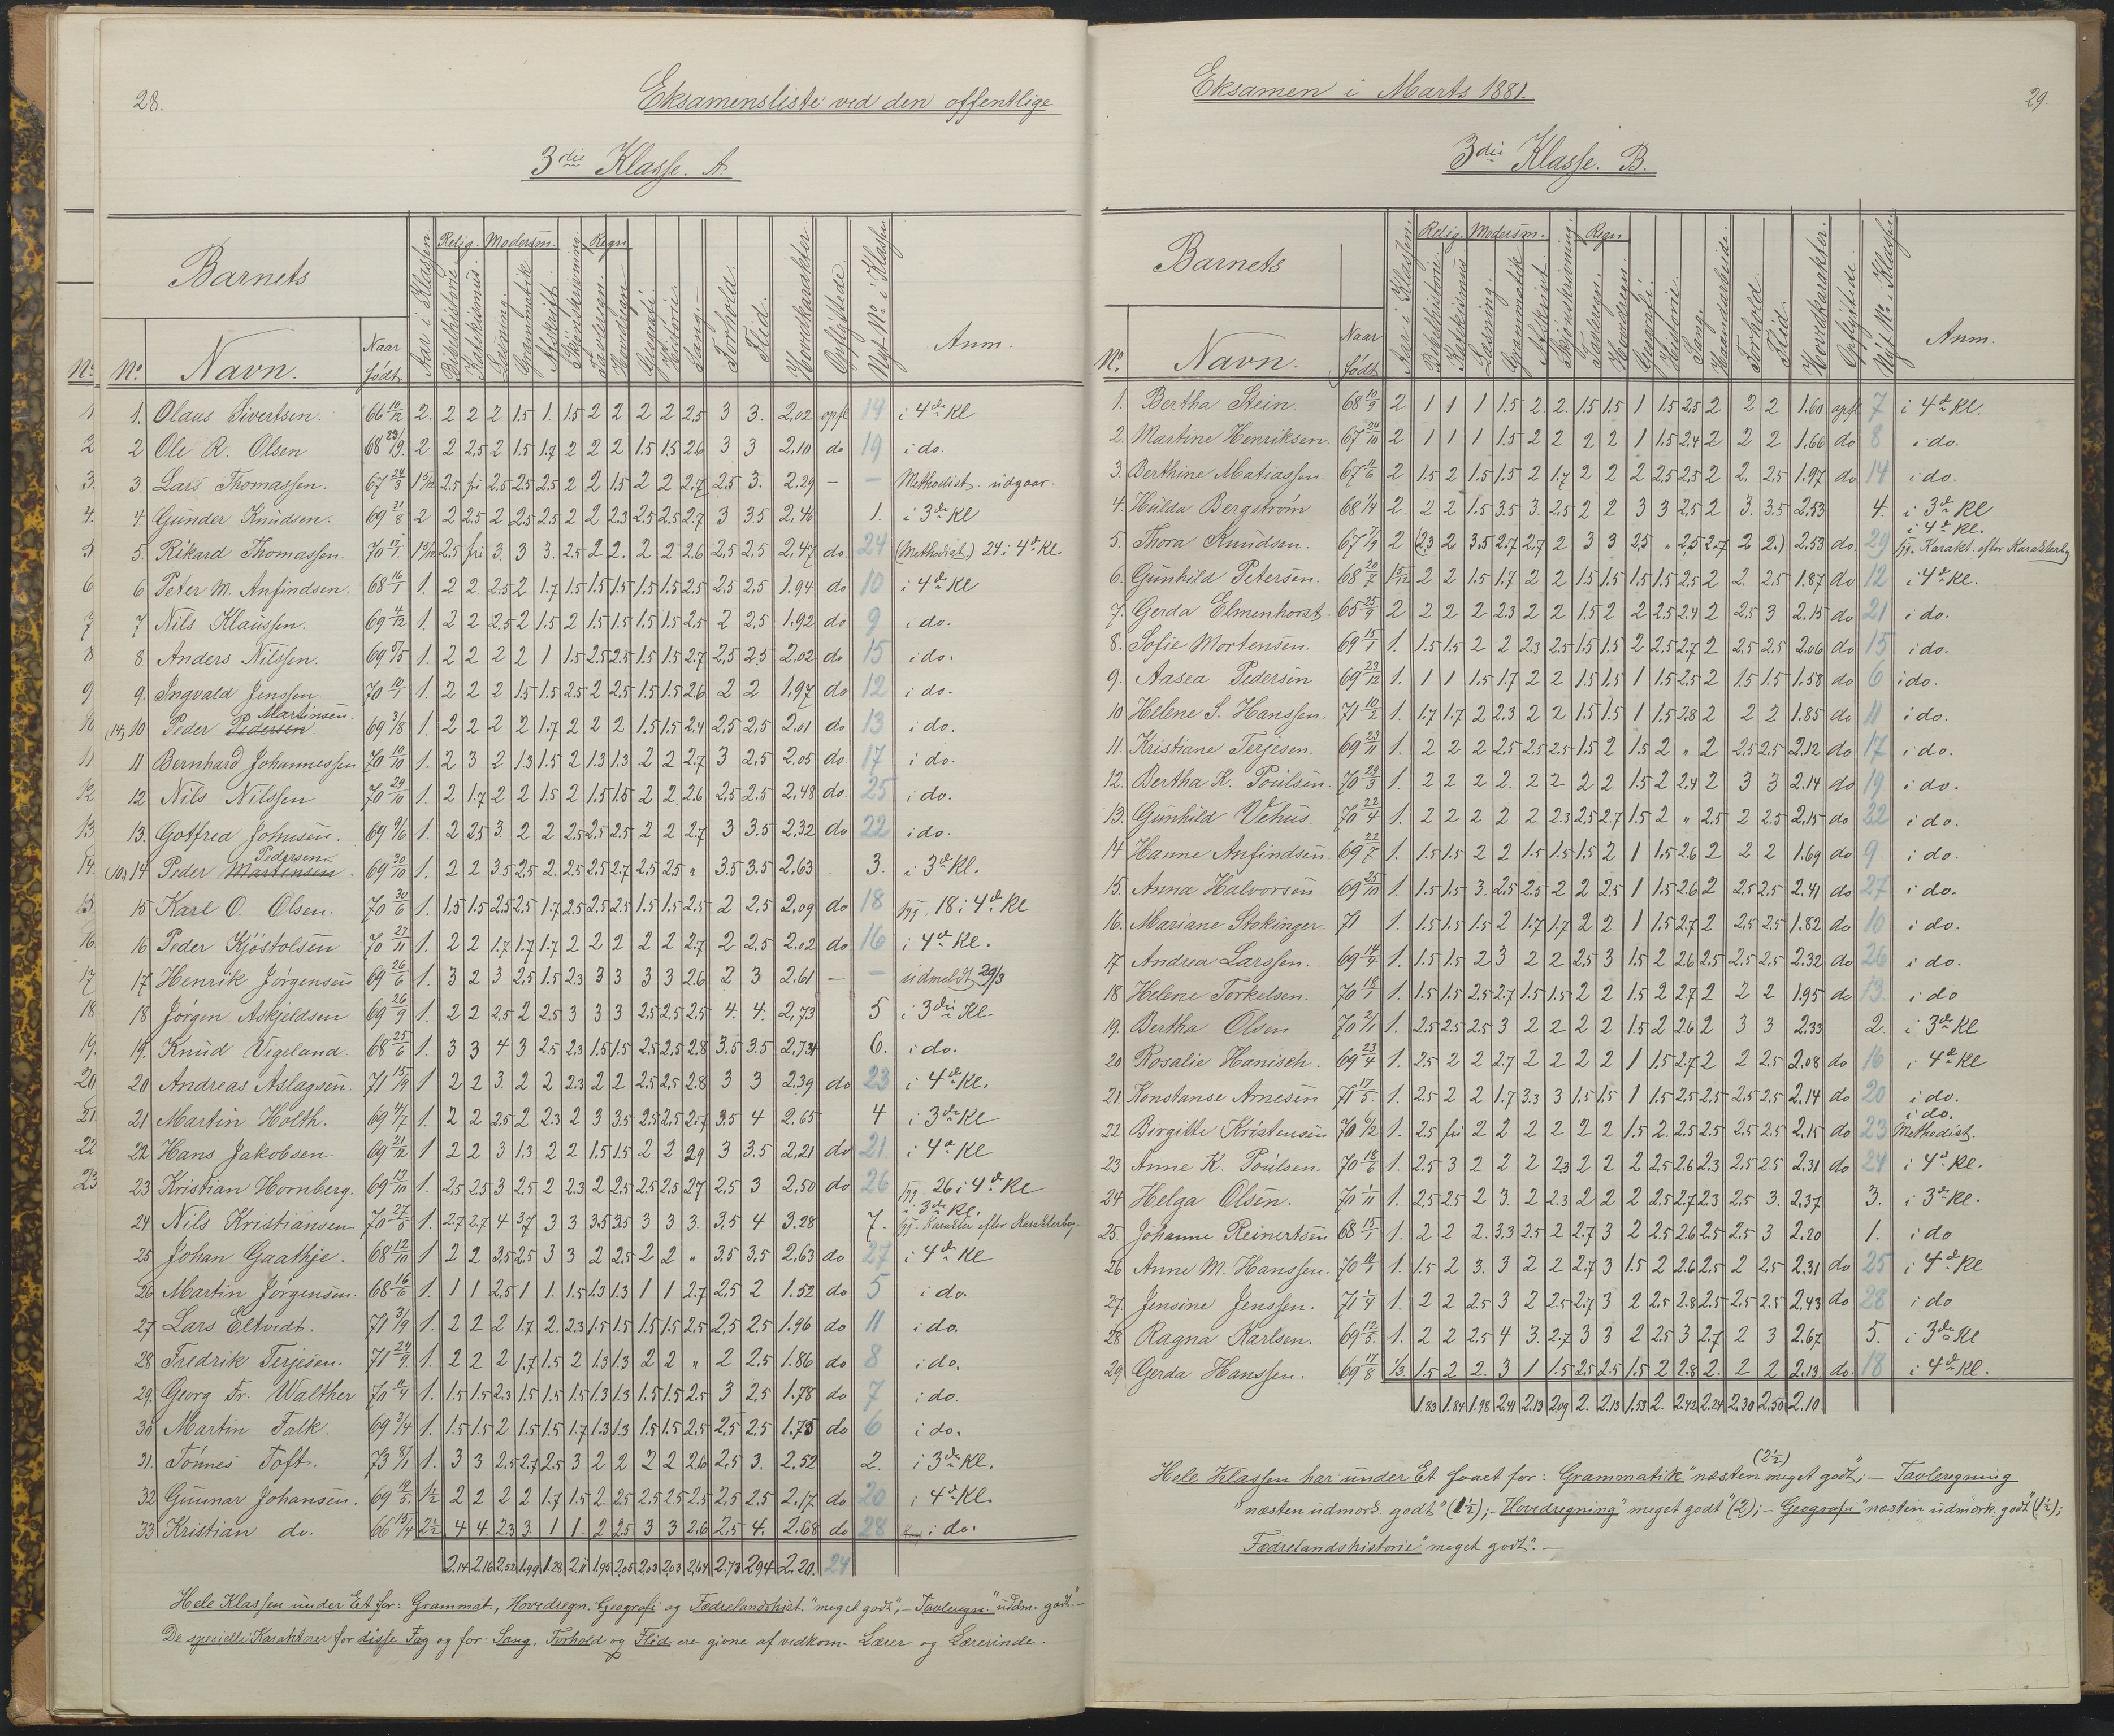 28.
Eksamensliste ved den offentlige
3die Klasse. A.
Barnets
Relig. Modersm. Regn
No. Navn. Naar født Aar i Klassen Bibelhistorie Katekismus Læsning Grammatik Afskrift Skjønskrivning Tavleregn. Hovedregn Geografi Historie Sang Forhold. Flid. Hovedkarakter Opflyttede Nyt No i Klassen Anm.
1. Olaus Sivertsen. 66 10/12 2. 2 2 2 1.5 1. 1.5 2 2 2 2 2.5 3 3. 2,02 opfl 14 i 4de Kl
2 Ole R. Olsen 68 23/9 2. 2 2.5 2 1.5 1.7 2 2 2 1.5 1.5 2.6 3 3 2,10 do 19 i do.
3. Lars Thomassen. 67 24/3 1 5/12 2.5 fri 2.5 2.5 2.5 2 2 1.5 2 2 2.7 2,5 3. 2.29 — — Methodist. udgaar.
4. Gunder Knudsen. 69 31/8 2 2 2.5 2 2.5 2.5 2 2 2.3 2.5 2.5 2.7 3 3.5 2,46 1. i 3die Kl
5. Rikard Thomassen. 70 17/1. 1 5/12 2.5 fri 3. 3 3. 2.5 2 2. 2 2 2.6 2,5 2,5 2,47 do. 24 (Methodist) 24 i 4de Kl.
6 Peter M. Anfindsen. 68 16/1 1. 2 2. 2.5 2 1.7 1.5 1.5 1.5 1.5 1.5 2.5 2,5 2,5 1.94 do 10 i 4de Kl
7 Nils Klaussen. 69 4/12 1. 2 2 2.5 2 1.5 2 1.5 1.5 1.5 1.5 2.5 2 2,5 1.92 do 9 i do.
8. Anders Nilssen. 69 5/5 1. 2 2 2 2 1 1.5 2.5 2.5 1.5 1.5 2.7 2,5 2.5 2.02 do 15 i do.
9. Ingvald Jenssen 70 10/1 1. 2 2 2 1.5 1.5 2.5 2 2.5 1.5 1.5 2.6 2 2 1,97 do 12 i do.
Martinsen.
(14) 10 Peder Pedersen 69 3/8 1. 2 2 2 2 1.7 2 2 2 1.5 1.5 2.4 2,5 2,5 2.01 do 13 i do.
11 Bernhard Johannessen 70 10/10 1. 2 3 2 1.3 1.5 2 1.3 1.3 2 2 2.7 3 2,5 2.05 do 17 i do.
12 Nils Nilssen 70 29/10 1. 2 1.7 2 2 1.5 2 1.5 1.5 2 2 2.6 2,5 2.5 2,48 do. 25 i do.
13. Gotfred Johnsen. 69 9/6 1. 2 2.5 3. 2 2 2.5 2.5 2.5 2 2 2.7 3 3.5 2,32 do 22 i do.
Pedersen
(10) 14 Peder Martinsen 69 30/10 1. 2 2 3.5 2.5 2. 2.5 2.5 2.7 2.5 2.5 " 3.5 3.5 2.63 3. i 3de Kl.
15 Karl O. Olsen. 70 30/6 1. 1.5 1.5 2.5 2.5 1.7 2.5 2.5 2.5 1.5 1.5 2.5 2 2,5 2,09 do 18 18 i 4de Kl
16 Peder Kjøstolsen 70 27/11 1. 2 2 1.7 1.7 1.7 2 2 2 2 2 2.7 2 2.5 2.02 do 16 i 4de Kl.
17 Henrik Jørgensen 69 26/6 1. 3 2 3 2.5 1.5 2.3 3 3 3 3 2.6 2 3 2.61 — — udmeldt 29/3
18 Jørgen Askjeldsen 69 26/9 1. 2 2 2.5 2 2.5 3 3 3 2.5 2.5 2.5 4. 4. 2,73 5 i 3die Kl.
19. Knud Vigeland. 68 25/6 1. 3 3 4 3 2.5 2.3 1.5 1.5 2.5 2.5 2.8 3.5 3.5 2.73 6. i do.
20 Andreas Aslagsen. 71 15/9 1 2 2 3. 2 2 2.3 2 2 2.5 2.5 2.8 3 3 2.39 do 23 i 4de Kl.
21 Martin Holth. 69 4/7 1. 2 2 2.5 2 2.3 2 3 3.5 2.5 2.5 2.7 3.5 4 2.65 4 i 3die Kl
22 Hans Jakobsen. 69 21/12 1 2 2 3 1.3 2 2 1.5 1.5 2 2 2.9 3 3.5 2,21 do 21. i 4de Kl
23 Kristian Hornberg. 69 13/10 1. 2.5 2.5 3 2.5 2 2.3 2 2.5 2.5 2.5 2.7 2,5 3 2,50 do 26 26 i 4de Kl
i 3die Kl.
24 Nils Kristiansen 70 27/5 1. 2.7 2.7 4 3.7 3 3 3.5 3.5 3 3 3. 3.5 4 3.28 7. Karakter efter Karakterbog.
25 Johan Gaathje. 68 12/10 1 2 2 3.5 2.5 3 3 2 2.5 2 2 " 3.5 3.5 2,63 do 27 i 4de Kl
26 Martin Jørgensen. 68 16/6 1. 1 1 2.5 1 1. 1.5 1.3 1.3 1 1 2.7 2,5 2 1.52 do 5 i do.
27 Lars Eltvedt. 71 3/9 1. 2 2 2 1.7 2. 2.3 1.5 1.5 1.5 1.5 2.5 2,5 2.5 1.96 do 11 i do.
28 Fredrik Terjesen. 71 24/9 1. 2 2 2 1.7 1.5 2 1.3 1.3 2 2 " 2 2.5 1.86 do 8 i do.
29. Georg Fr. Walther 70 11/4 1. 1.5 1.5 2.3 1.5 1.5 1.5 1.3 1.3 1.5 1.5 2.5 3 2.5 1.78 do 7 i do.
30 Martin Falk. 69 3/4 1. 1.5 1.5 2 1.5 1.5 1.7 1.3 1.3 1.5 1.5 2.5 2,5 2.5 1.75 do 6 i do.
31. Tönnes Toft. 73 8/1 1. 3 3 2.5 2.7 2.5 3 2 2 2 2 2.6 2,5 3. 2.52 2. i 3die Kl.
32 Gunnar Johansen. 69 19/5. 1/2 2 2 2 2 1.7 1.5 2. 2.5 2.5 2.5 2.5 2,5 2.5 2.17 do 20 i 4de Kl.
33 Kristian do. 66 13/4 2 1/2 4 4. 2.3 3. 1 1. 2 2.5 3 3 2.6 2,5 4. 2.68 do 28 i do.
2.14 2.16 2.52 1.99 1.28 2.11 1.95 2.05 2.03 2.03 2,64 2.73 2.94 2.20. 24
Hele Klassen under Et for: Grammat., Hovedregn. Geografi og Fædrelandshist. "meget godt", — Tavleregn. "udm. godt." —
De specielle Karakterer for disse Fag og for: Sang, Forhold og Flid ere givne af vedkom. Lærer og Lærerinde.
Eksamen i Marts 1881.
29.
3die Klasse. B.
Barnets
Relig. Modersm. Regn
No. Navn. Naar født Aar i Klassen Bibelhistorie Katekismus Læsning Grammatik Afskrift Skjønskrivning Tavleregn. Hovedregn. Geografi Historie. Sang. Haandarbeide. Forhold Flid. Hovedkarakter. Opflyttede. Nyt No i Klassen Anm.
1. Bertha Stein. 68 10/9 2 1 1 1 1.5 2. 2. 1.5 1.5 1 1.5 2.5 2 2 2 1.60 opfl 7 i 4de Kl.
2. Martine Henriksen. 67 24/10 2 1 1 1 1.5 2 2 2 2 1 1.5 2.4 2 2 2 1.66 do 8 i do.
3. Berthine Matiassen 67 11/6 2 1.5 2 1.5 1.5 2 1.7 2 2 2 2.5 2.5 2 2. 2.5 1.97 do 14 i do.
4. Hulda Bergström 68 1/4 2. 2 2 1.5 3.5 3. 2.5 2 2 3 3 2.5 2 3. 3.5 2.53 4. i 3die Kl
i 4de Kl.
5. Thora Knudsen. 67 7/9 2 (2.3 2 3.5 2.7 2.7 2 3 3 2.5 " 2.5 2.7 2 2.) 2.53 do. 29 Karakt. efter Karakterb.
6. Gunhild Petersen. 68 20/7 5/12 2 2 1.5 1.7 2 2 1.5 1.5 1.5 1.5 2.5 2 2. 2.5 1.87 do 12 i 4de Kl.
7. Gerda Elmenhorst. 65 25/9 2 2 2 2 2.3 2 2 1.5 2 2 2.5 2.4 2 2.5 3 2.15 do 21 i do.
8. Sofie Mortensen. 69 15/1 1. 1.5 1.5 2 2 2.3 2.5 1.5 1.5 2 2.5 2.7 2 2.5 2.5 2.06 do 15 i do.
9. Aasea Pedersen 69 23/12 1. 1 1 1.5 1.7 2 2 1.5 1.5 1 1.5 2.5 2 1.5 1.5 1.58 do 6 i do.
10 Helene S. Hanssen. 71 10/2 1. 1.7 1.7 2 2.3 2 2 1.5 1.5 1 1.5 2.8 2 2 2 1.85 do 11 i do.
11. Kristiane Terjesen. 69 23/11 1. 2 2 2 2.5 2.5 2.5 1.5 2 1.5 2 " 2 2.5 2.5 2.12 do 17 i do.
12. Bertha K. Poulsen. 70 29/3 1. 2 2 2 2. 2 2 2 2 1.5 2 2.4 2 3 3 2.14 do 19 i do.
13. Gunhild Vehus. 70 22/4 1. 2 2 2 2 2 2.3 2.5 2.7 1.5 2 " 2.5 2 2.5 2.15 do 22 i do.
14 Hanne Anfindsen. 69 22/7 1. 1.5 1.5 2 2 1.5 1.5 1.5 2 1 1.5 2.6 2 2 2 1.69 do 9 i do.
15 Anna Halvorsen 69 25/10 1. 1.5 1.5 3. 2.5 2.5 2 2 2.5 1 1.5 2.6 2 2.5 2.5 2.41 do 27 i do.
16. Mariane Stokinger. 71 1. 1.5 1.5 1.5 2 1.7 1.7 2 2 1 1.5 2.7 2 2.5 2.5 1.82 do 10 i do.
17 Andrea Larssen. 69 14/4 1. 1.5 1.5 2 3 2 2 2.5 3 1.5 2 2.6 2.5 2.5 2.5 2.32 do 26 i do.
18 Helene Torkelsen. 70 18/1 1. 1.5 1.5 2.5 2.7 1.5 1.5 2 2 1.5 2 2.7 2 2 2 1.95 do 13. i do
19. Bertha Olsen 70 2/1 1. 2.5 2.5 2.5 3 2 2 2 2 1.5 2 2.6 2 3 3 2.33 2. i 3die Kl
20 Rosalie Hanisch. 69 23/4 1. 2.5 2 2 2.7 2 2 2 2 1 1.5 2.7 2 2 2.5 2.08 do 16 i 4de Kl
21 Konstanse Arnesen 71 17/5. 1. 2.5 2 2 1.7 3.3 3 1.5 1.5 1 1.5 2.5 2.5 2.5 2.5 2.14 do 20 i do.
i do.
22 Birgitte Kristensen 70 6/12 1. 2.5 fri 2 2 2 2 2 2 1.5 2. 2.5 2.5 2.5 2.5 2.15 do 23 Methodist.
23 Anne K. Poulsen. 70 18/6 1. 2.5 3 2 2 2 2.3 2 2 2 2.5 2.6 2.3 2.5 2.5 2.31 do 24 i 4de Kl.
24 Helga Olsen. 70 1/11 1. 2.5 2.5 2 3. 2 2.3 2 2 2 2.5 2.7 2.3 2.5 3. 2.37 3. i 3die Kl.
25. Johanne Reinertsen 68 15/1 1. 2 2 2. 3.3 2.5 2 2.7 3 2 2.5 2.6 2.5 2.5 3 2.20 1. i do
26 Anne M. Hanssen. 70 10/1 1. 1.5 2 3. 3 2 2 2.7 3 1.5 2 2.6 2.5 2 2.5 2.31 do 25 i 4de Kl
27. Jensine Jenssen. 71 1/4 1. 2 2 2.5 3 2 2.5 2.7 3 2 2.5 2.8 2.5 2.5 2.5 2.43 do 28 i do
28 Ragna Karlsen. 69 12/5. 1. 2 2 2.5 4 3. 2.7 3 3 2 2.5 3 2.7 2 3 2.67 5. i 3die Kl
29 Gerda Hanssen. 69 17/8 1/3. 1.5 2 2. 3 1 1.5 2.5 2.5 1.5 2 2.8 2. 2 2 2.13. do. 18 i 4de Kl.
1.83 1.84 1.98 2.41 2.13 2.09 2. 2.13 1.53 2. 2.42 2.24 2.30 2.50 2.10
(2½)
Hele Klassen har under Et faaet for: Grammatik "næsten meget godt"; — Tavleregning
"næsten udmærk. godt" (1½); — Hovedregning "meget godt" (2); — Geografi "næsten udmærk. godt" (1½);
Fædrelandshistorie "meget godt". —